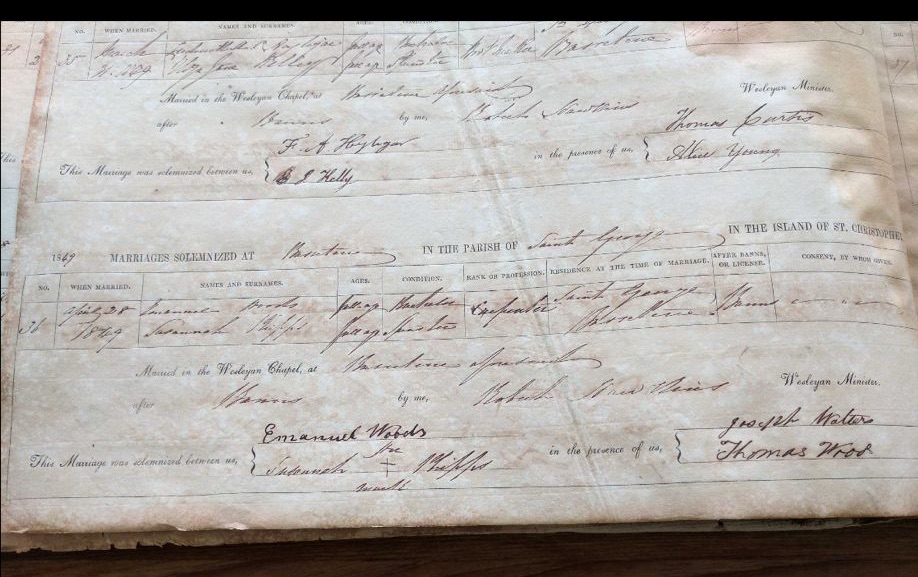 NO. WHEN MARRIED. NAMES AND SURNAMES. AGES.
35 March
1869 Eliza Jane Kelly full age Spinster
Married in the Wesleyan Chapel, at Wesleyan Minister.
after Banns by me, Robert Hawkins
F. A. Heyliger Thomas Curtis
This Marriage was solemnized between us, in the presence of us,
B J Kelly Alice Young
1869 MARRIAGES SOLEMNIZED AT IN THE PARISH OF Saint George IN THE ISLAND OF ST. CHRISTOPHE
NO. WHEN MARRIED. NAMES AND SURNAMES. AGES. CONDITION. RANK OR PROFESSION. RESIDENCE AT THE TIME OF MARRIAGE. AFTER BANNS, OR LICENSE. CONSENT, BY WHOM GIVEN.
36 April 28 Emanuel Woods full age Bachelor Carpenter Saint George Banns
1869 Susannah Phipps full age Spinster Basseterre
Married in the Wesleyan Chapel, at Wesleyan Minister.
after Banns by me, Robert Hawkins
Emanuel Woods Joseph Walters
This Marriage was solemnized between us, in the presence of us,
Susannah her + Phipps Thomas Wood
mark